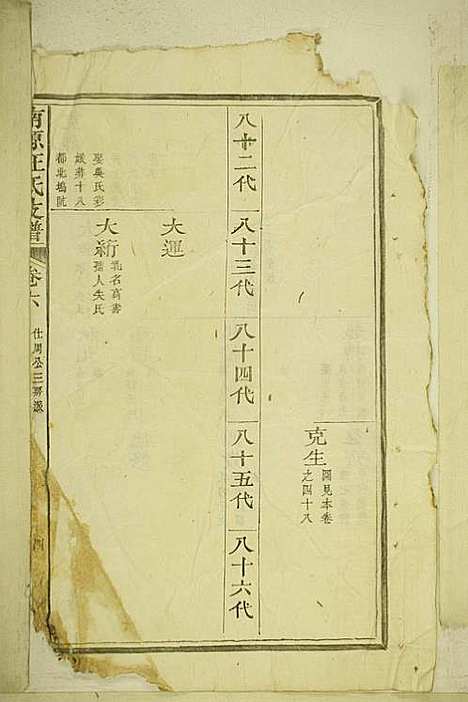 克生
圖見本卷
之四十八
八十二代 八十三代 八十四代 八十五代 八十六代
大運
大新
乳名高書
孺人朱氏
娶吳氏彩
媒葬十八
都北塢阬
南源汪氏支譜 卷六 仕周公三房派 四